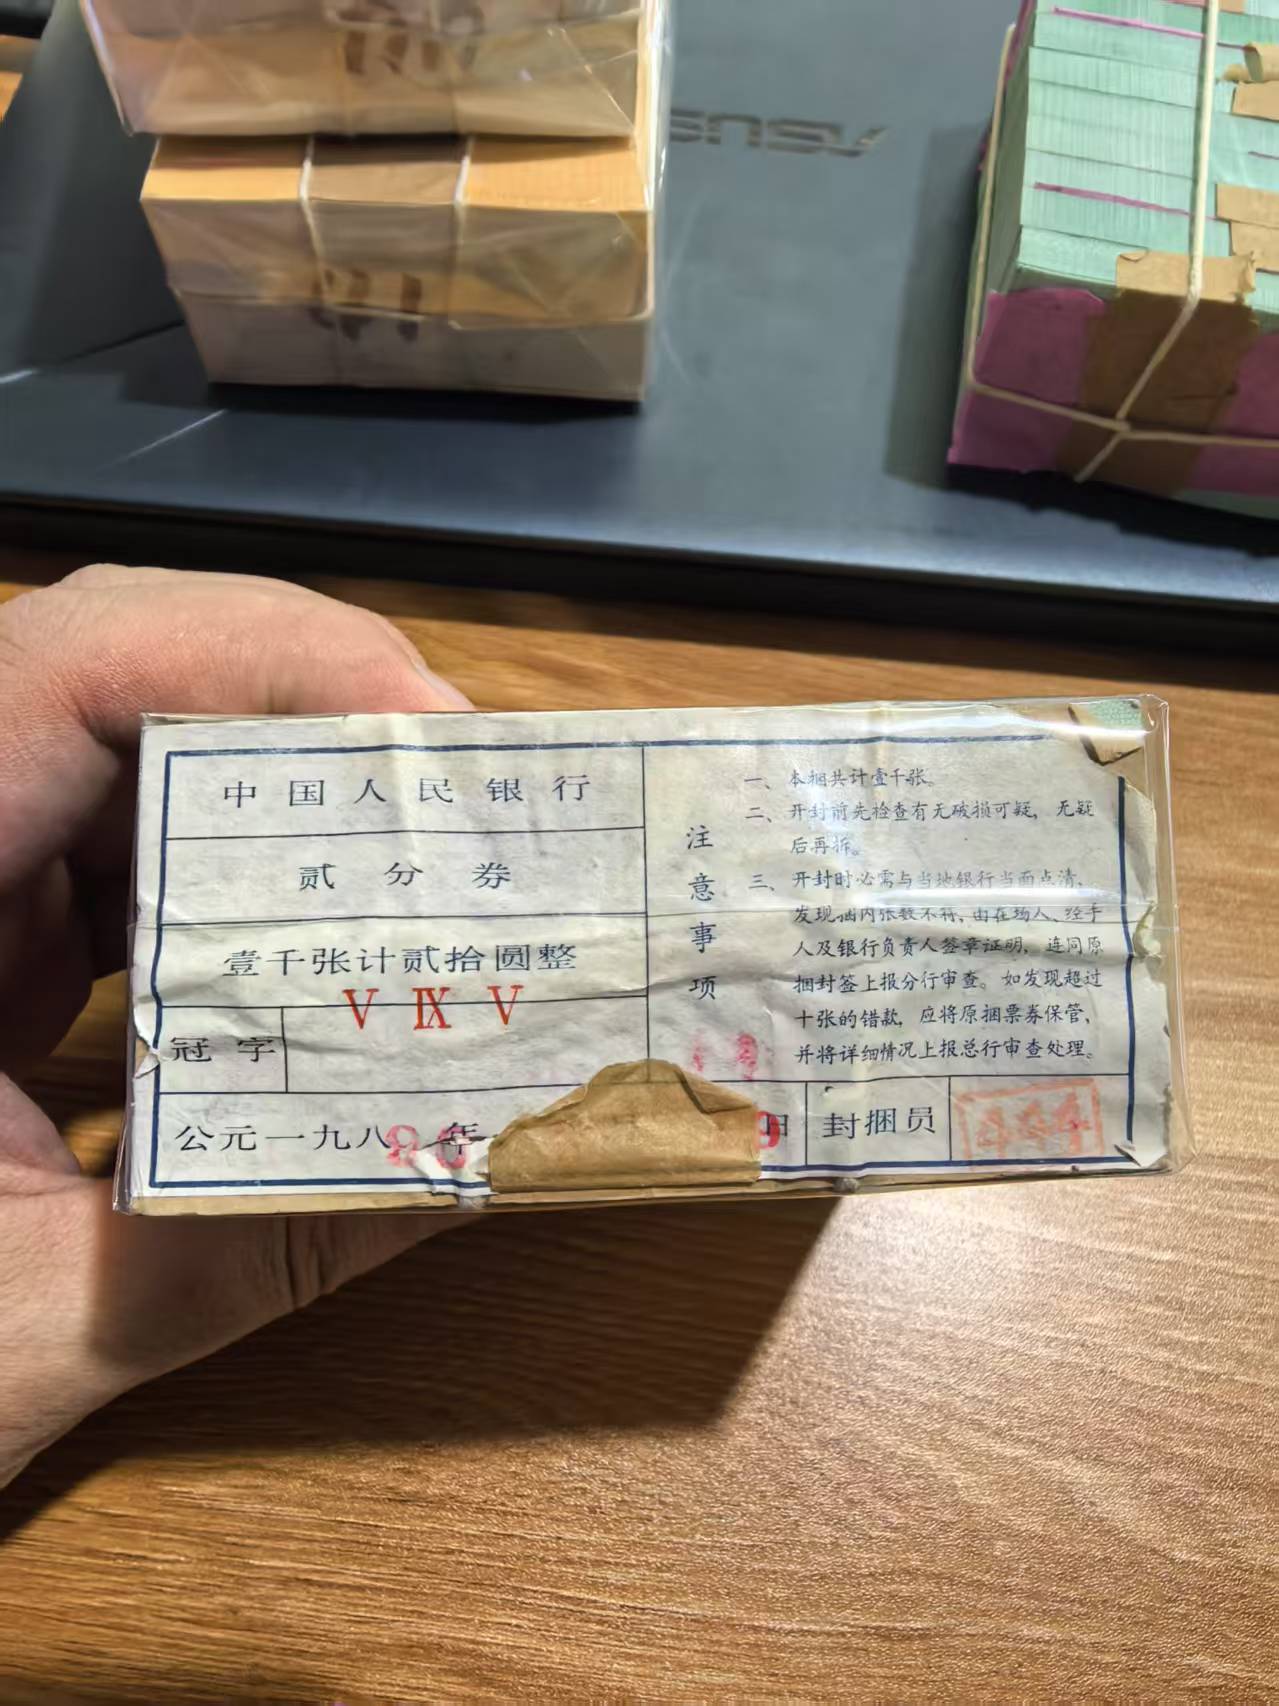 ASUS
中国人民银行
贰分券
壹千张计贰拾圆整
冠字
V IX V
公元一九八
年
9日
封捆员
注意事项
一、本捆共计壹千张。
二、开封前先检查有无破损可疑，无疑
后再拆。
三、开封时必需与当地银行当面点清，
发现捆内张数不符，由在场人、经手
人及银行负责人签章证明，连同原
捆封签上报分行审查。如发现超过
十张的错款，应将原捆票券保管，
并将详细情况上报总行审查处理。